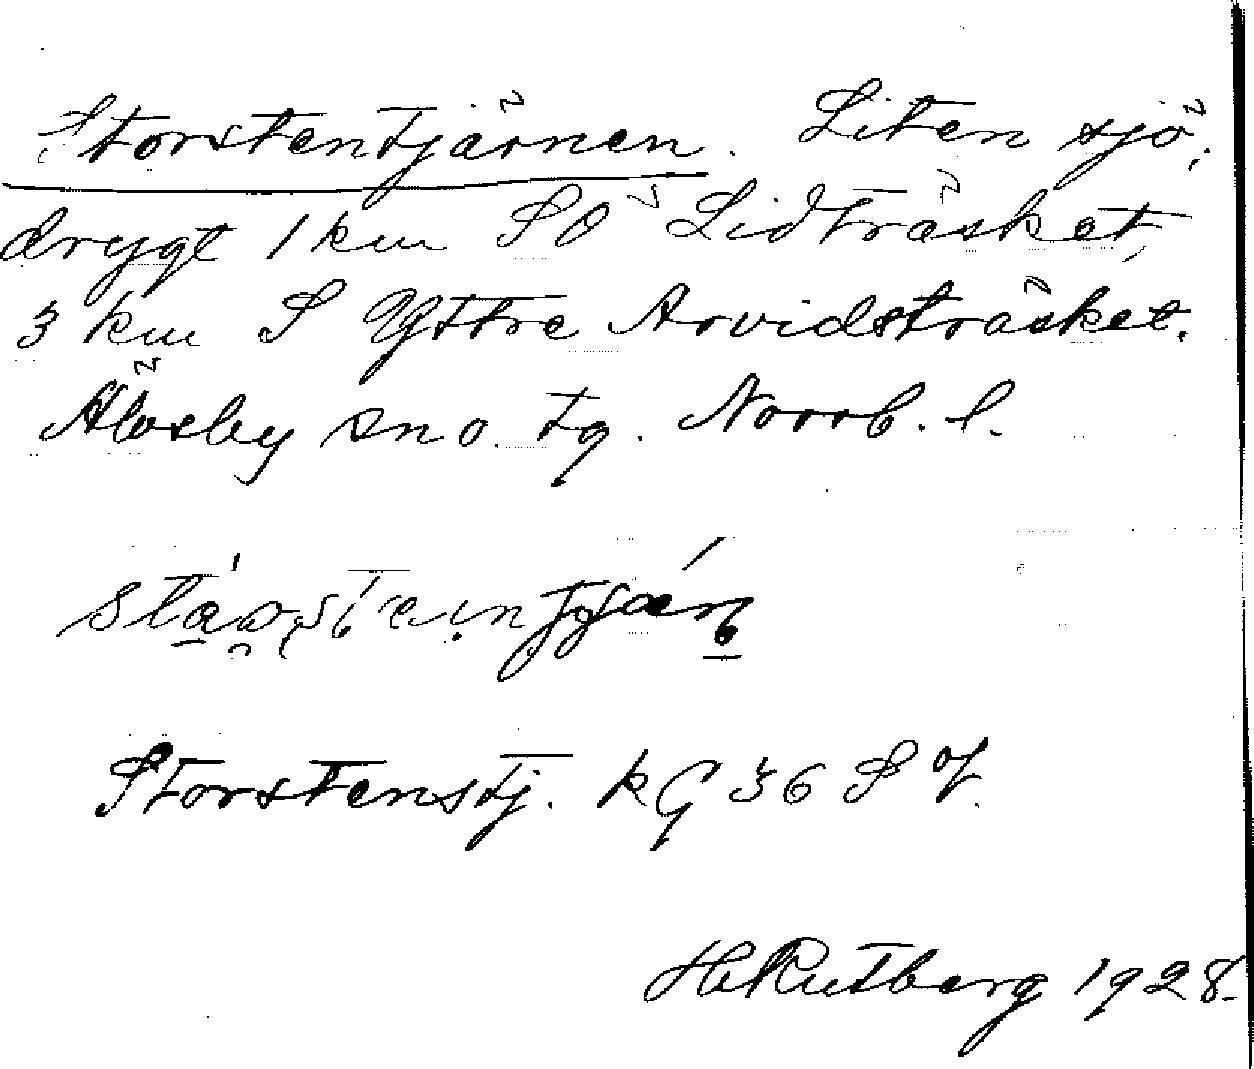 Storstentjärnen. Liten sjö,
drygt 1 km SÖ Lidträsket,
3 km S Yttre Arvidsträsket.
Älvsby sn o. tg. Norrb. l.
Storstenstj. kG 36 S V.
H Rutberg 1928.